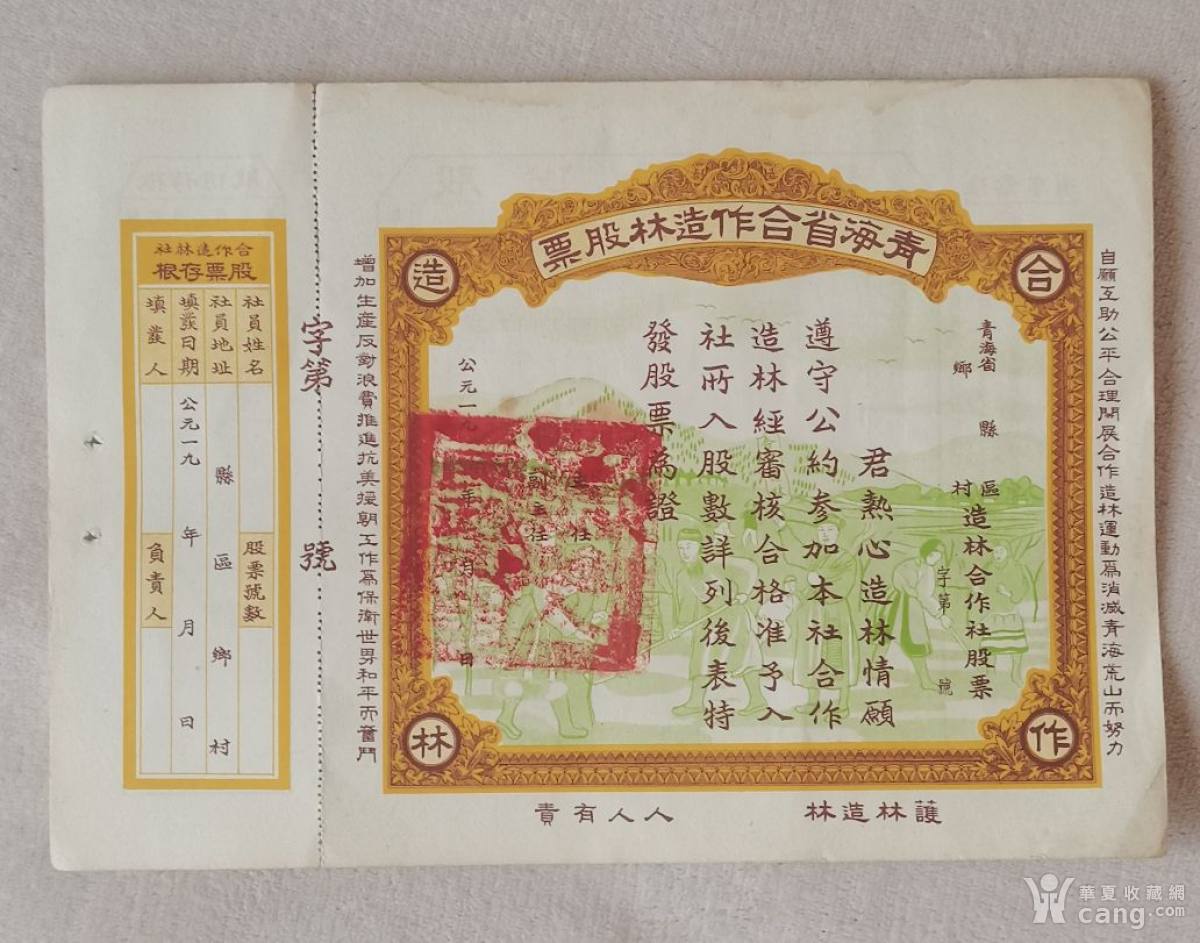 青海省合作造林股票
合
作
造
林
自願互助公平合理開展合作造林運動爲消滅青海荒山而努力
青海省 縣 區
鄉 村
造林合作社股票
字第 號
君熱心造林情願
遵守公約参加本社合作
造林經審核合格准予入
社所入股數詳列後表特
發股票為證
主任
副主任
公元一九 年 月 日
增加生產反對浪費推進抗美援朝工作爲保衛世界和平而奮鬥
護林造林
人人有責
字第 號
合作造林社
股票存根
社員姓名
股票號數
社員地址
縣 區 鄉 村
填發日期
公元一九 年 月 日
填發人
負責人
華夏收藏網
cang.com